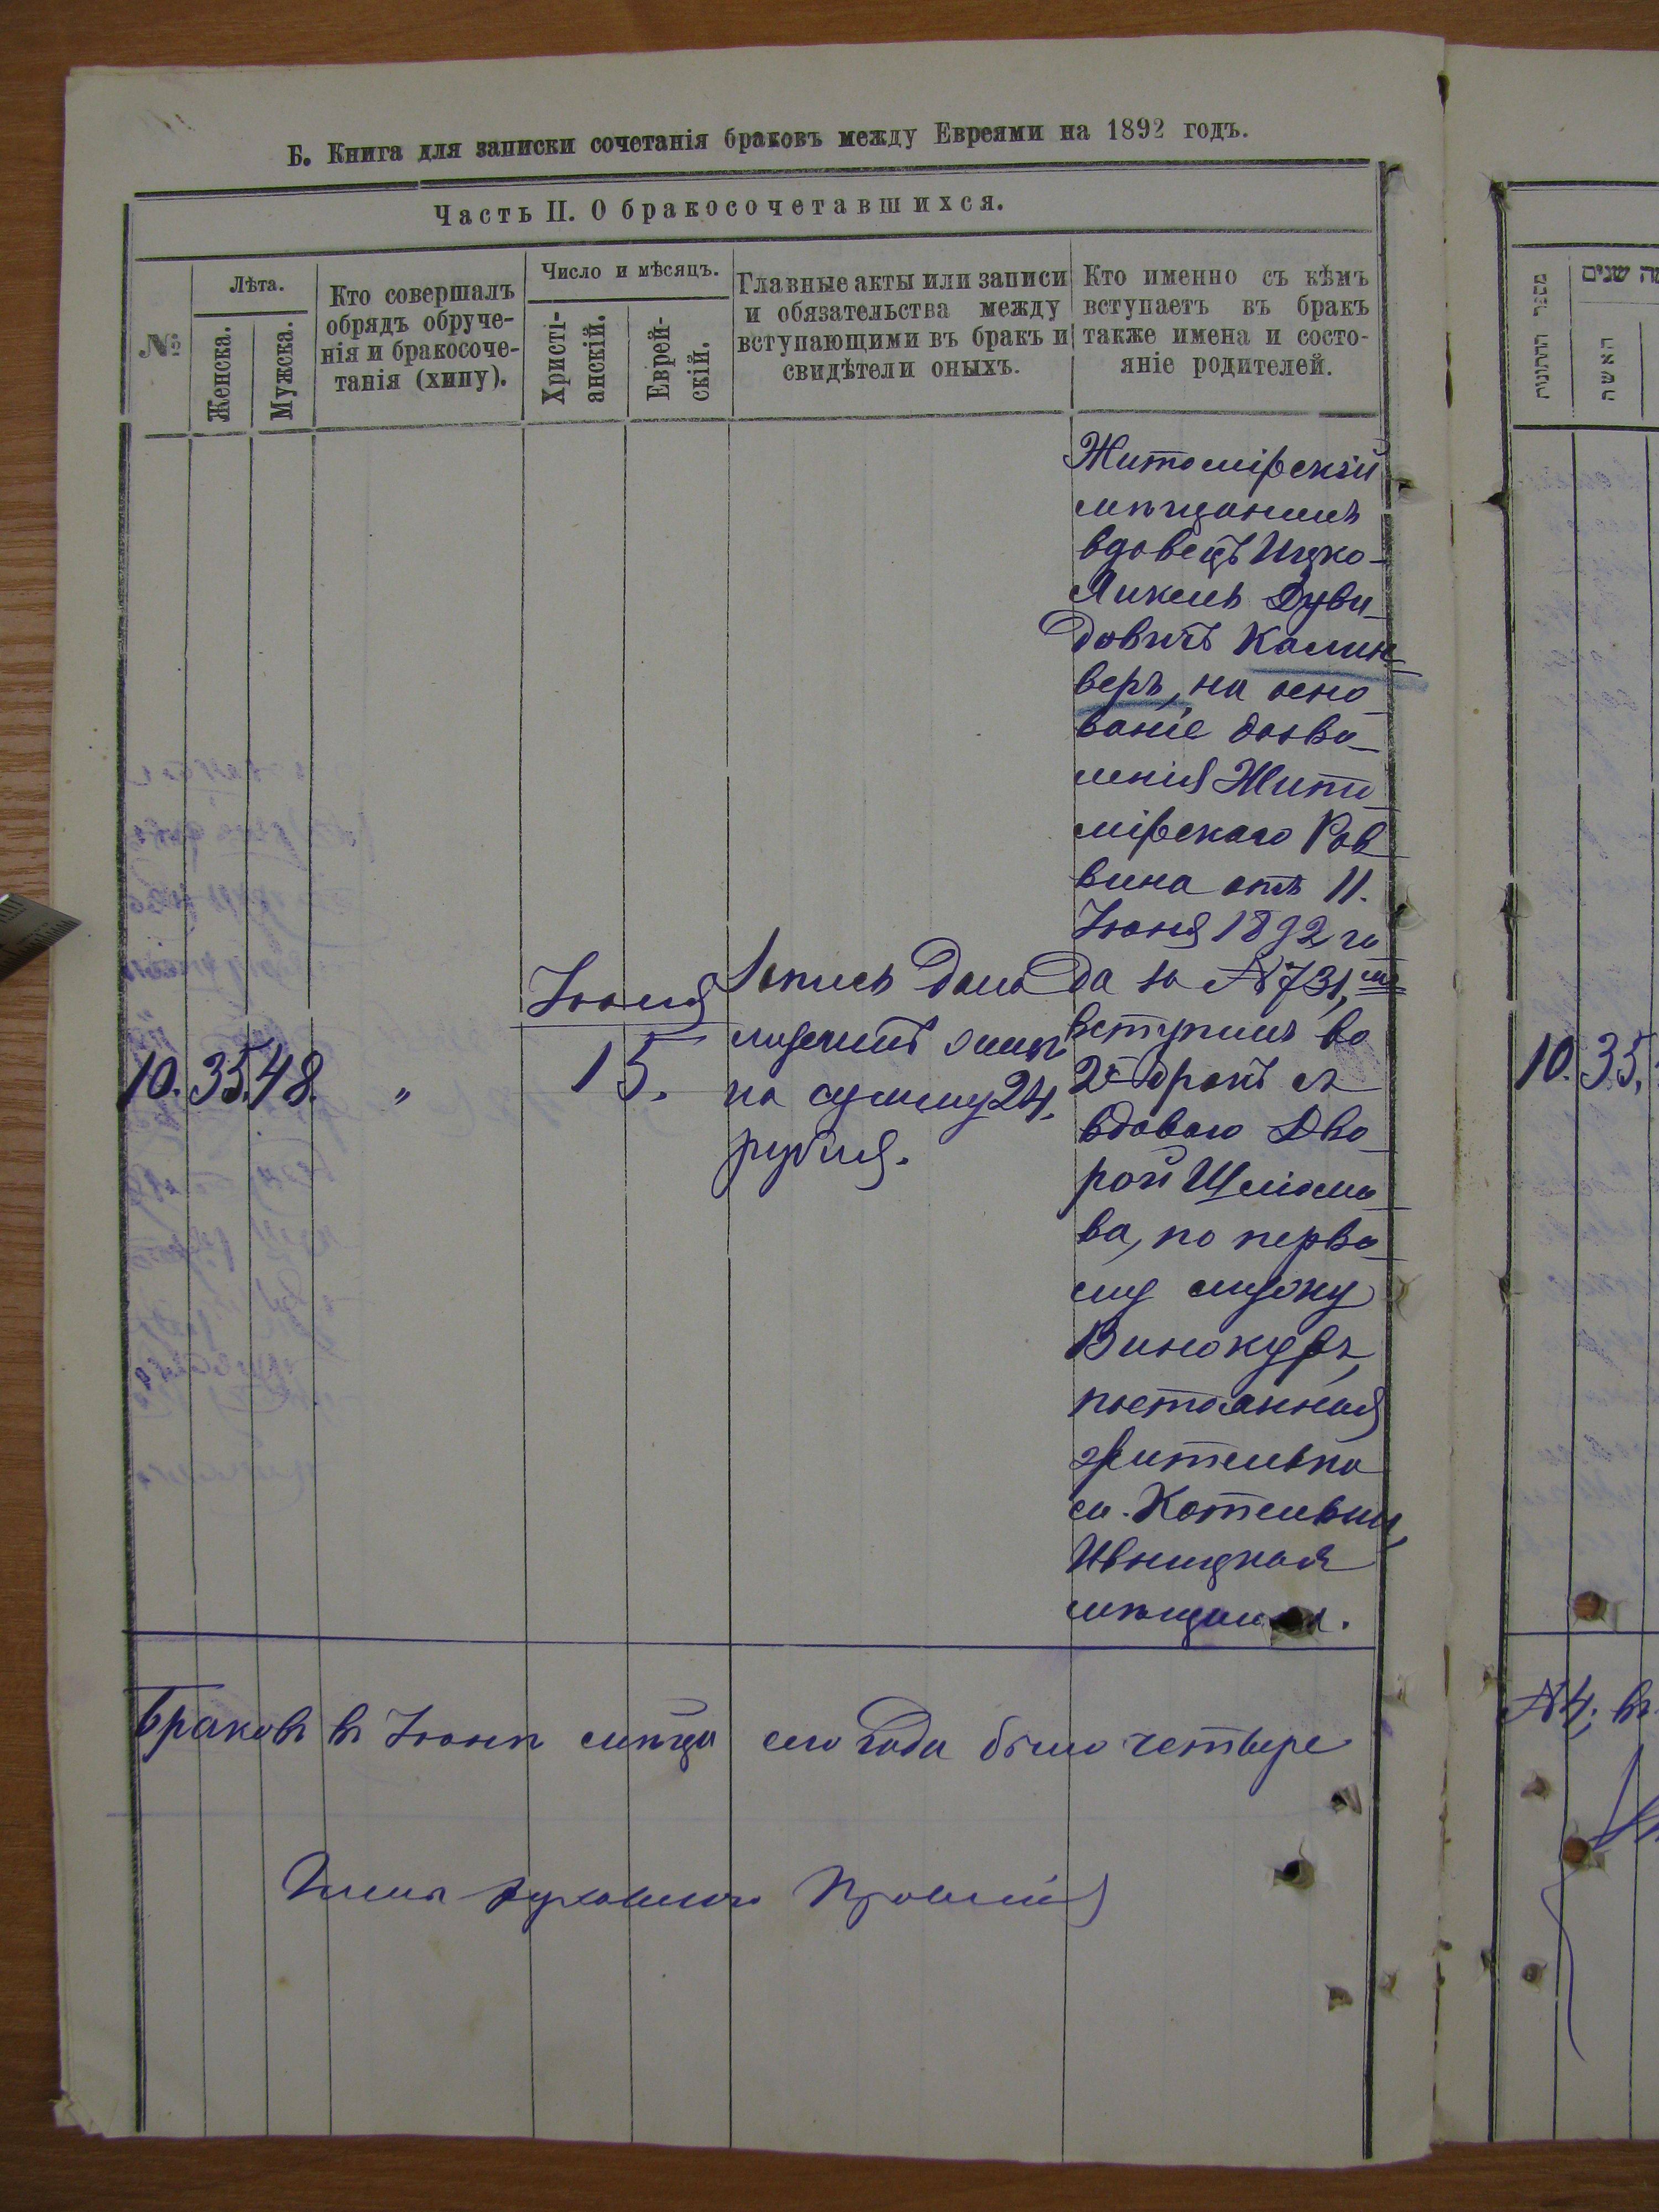 Б. Книга для записки сочетанія браковъ между Евреями на 1892 годъ.
Часть II. О бракосочетавшихся.
№
Лѣта.
Женска.
Мужска.
Кто совершалъ
обрядъ обруче-
нія и бракосоче-
танія (хипу).
Число и мѣсяцъ.
Христі-
анскій.
Еврей-
скій.
Главные акты или записи
и обязательства между
вступающими въ бракъ и
свидѣтели оныхъ.
Кто именно съ кѣмъ
вступаетъ въ бракъ
также имена и состо-
яніе родителей.
10. 35. 48. "
Іюня
15.
Запись дана
на сумму 24.
рубля.
Житомірскій
мѣщанинъ
вдовецъ Ицко-
Дуви-
довичъ Калин-
веръ, на осно-
ваніе дозво-
ленія Жито-
мірскаго Рав-
вина отъ 11.
Іюня 1892 го
да за №731,
вступилъ во
2й бракъ съ
вдовою Дво-
рой Шліомо-
ва, по перво-
му мужу
Винокуръ,
постоянная
жителька
м. Котельни,
Ивницкая
Браковъ въ Іюнѣ мѣцѣ сего года было четыре
מספר החתונות
שנים
האשה
10. 35.
№4; въ